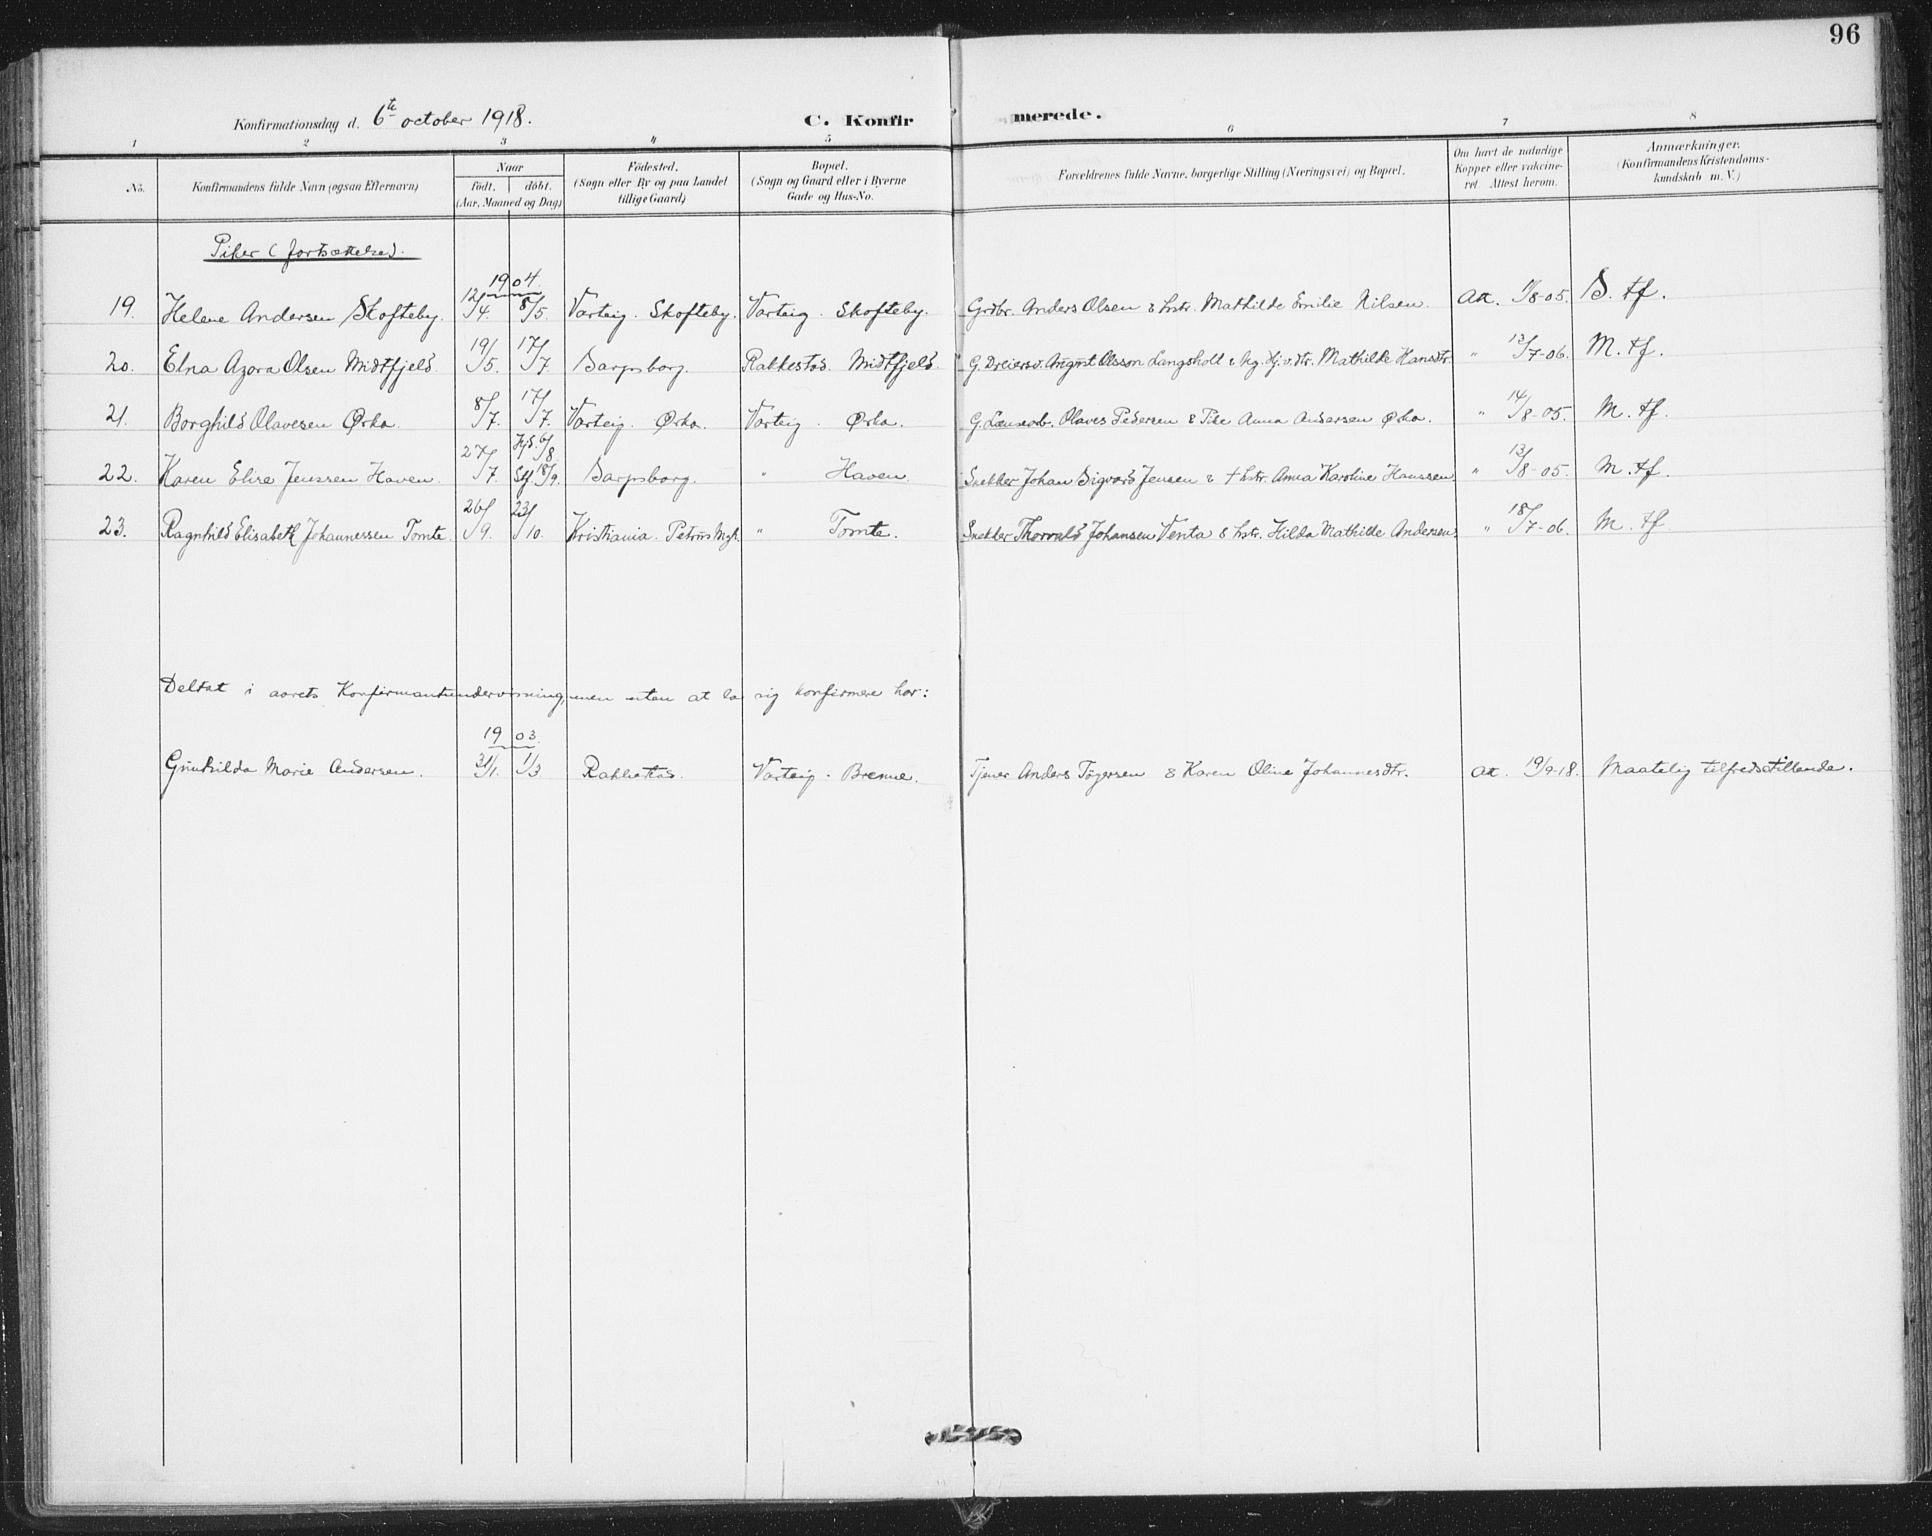 96
Konfirmationsdag d. 6te october 1918. C. Konfirmerede.
1 2 3 4 5 6 7 8
No. Konfirmandens fulde Navn (ogsaa Efternavn) Naar født. døbt. (Aar, Maaned og Dag) Fødested. (Sogn eller By og paa Landet tillige Gaard) Bopæl. (Sogn og Gaard eller i Byerne Gade og Hus-No. Forældrenes fulde Navne, borgerlige Stilling (Næringsvei) og Bopæl. Om havt de naturlige Kopper eller vakcineret. Attest herom. Anmærkninger. (Konfirmandens Kristendomskundskab m. V.)
Piker (fortsættelse).
1904.
19. Helene Andersen Skofteby. 12/4. 8/5. Varteig. Skofteby. Varteig. Skofteby. Grdbr. Anders Olsen & hstr. Mathilde Emilie Nilsen. Att. /8-05. S. tf.
20. Elna Azora Olsen Midtfjeld. 19/5. 17/7. Sarpsborg. Rakkestad. Midtfjeld. G. Dreiersv. August Olsson Langsholt & Ug. Hj.v.dtr. Mathilde Hansdtr. " 13/7-06. M. tf.
21. Borghild Olavesen Ørka. 8/7. 17/7. Varteig. Ørka. Varteig. Ørka. G. Olaves Pedersen & Pike Anna Andersen Ørka. " 14/8-05. M. tf.
22. Karen Elise Jenssen Haven. 27/7. Hjd. 6/8. Stf. 18/9. Sarpsborg. " Haven. Snekker Johan Sigvard Jensen & † hstr. Anna Karoline Hanssen " 13/8-05. M. tf.
23. Ragnhild Elisabeth Johannessen Tomte. 26/9. 23/10. Kristiania. Petrus Mgh. " Tomte. Snekker Thorvald Johansen Venta & hstr. Hilda Mathilde Andersen. " 18/7-06. M. tf
Deltat i aarets Konfirmantundervisning, men uten at la sig konfirmere har:
1903.
Gunhilda Marie Andersen. 31/1. 1/3 Rakkestad. Varteig. Brenne. Tjener Anders Tøgersen & Karen Oline Johannesdtr. Att. 19/9-18. Maatelig tilfredsstillende.